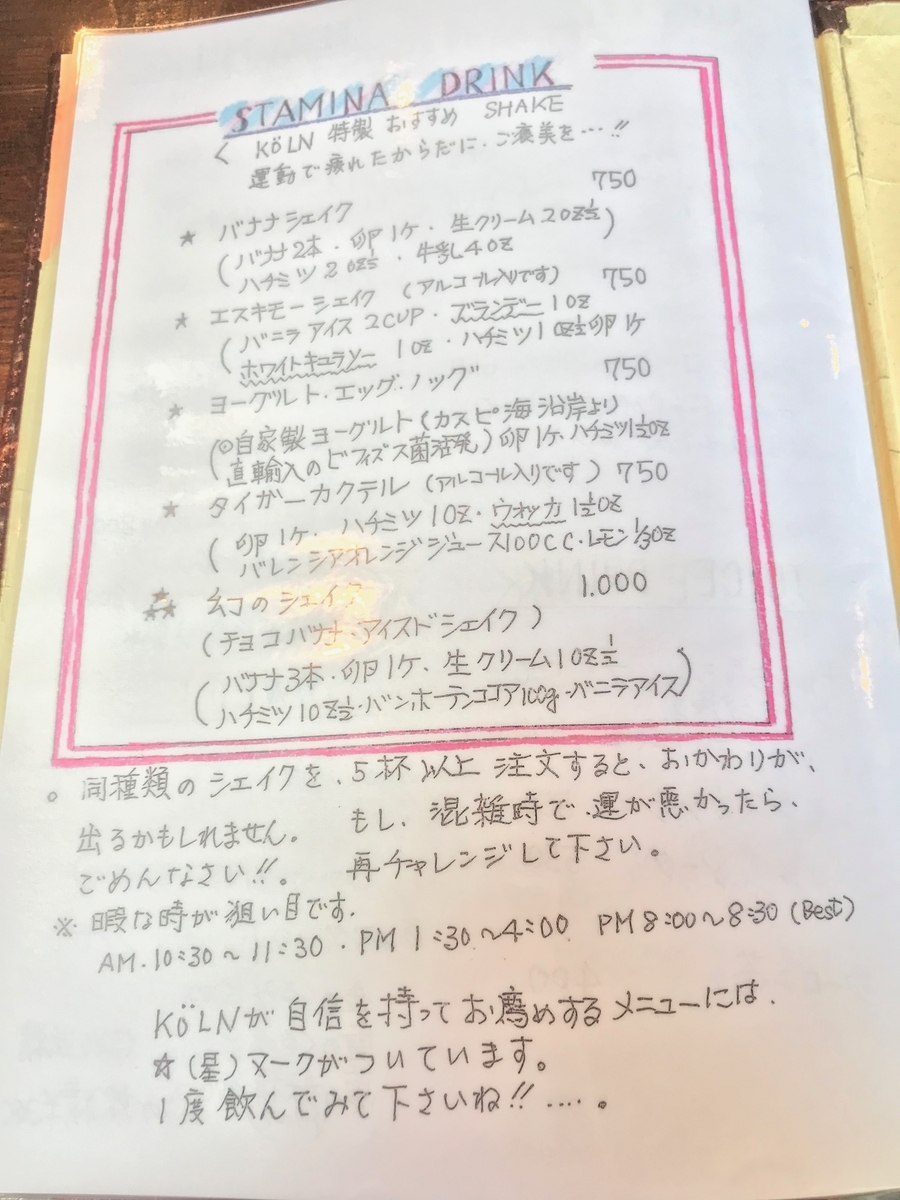 STAMINA DRINK
< KÖLN 特製 おすすめ SHAKE
運動で疲れたからだに、ご褒美を…!!
★ バナナシェイク 750
(バナナ2本・卵1ケ・生クリーム2OZ½
ハチミツ2OZ½・牛乳4OZ)
★ エスキモーシェイク (アルコール入りです) 750
(バニラアイス2CUP・ブランデー1OZ
ホワイトキュラソー1OZ・ハチミツ1OZ½卵1ケ
★ ヨーグルト・エッグ・ノッグ 750
(◎自家製ヨーグルト(カスピ海沿岸より
直輸入のビフィズス菌活発)卵1ケ・ハチミツ1½OZ
★ タイガーカクテル (アルコール入りです) 750
(卵1ケ、ハチミツ1OZ・ウオッカ1½OZ
バレンシアオレンジジュース100CC・レモン1/3OZ
★★★ 幻のシェイク 1.000
(チョコバナナ・アイスドシェイク)
(バナナ3本・卵1ケ、生クリーム1OZ½
ハチミツ1OZ½・バンホーテンココア100g・バニラアイス)
。同種類のシェイクを、5杯以上注文すると、おかわりが、
出るかもしれません。 もし、混雑時で、運が悪かったら、
ごめんなさい!!。 再チャレンジして下さい。
※ 暇な時が狙い目です.
AM.10:30〜11:30・PM 1:30〜4:00 PM 8:00〜8:30(Best)
KÖLNが自信を持ってお薦めするメニューには、
☆(星)マークがついています。
1度飲んでみて下さいね!!….。